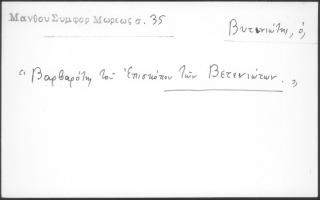 Μανθου Συμφορ Μωρεως σ. 35
Βυτινιώτης, ὁ,
"Βαρβαρότης τοῦ Ἐπισκόπου τῶν Βετενιώτων."